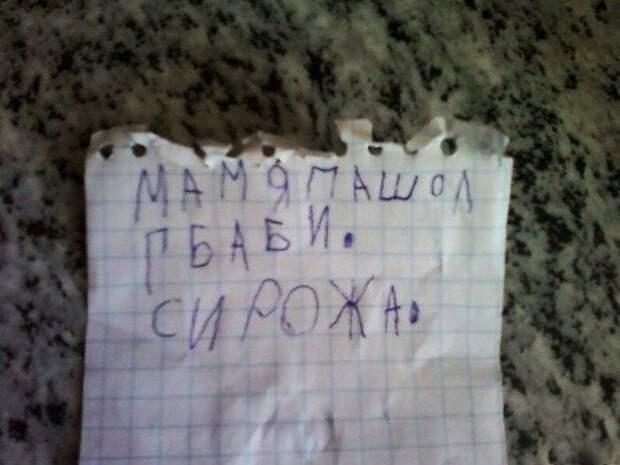 МАМ Я ПАШОЛ
Г БАБИ.
СИРОЖА.